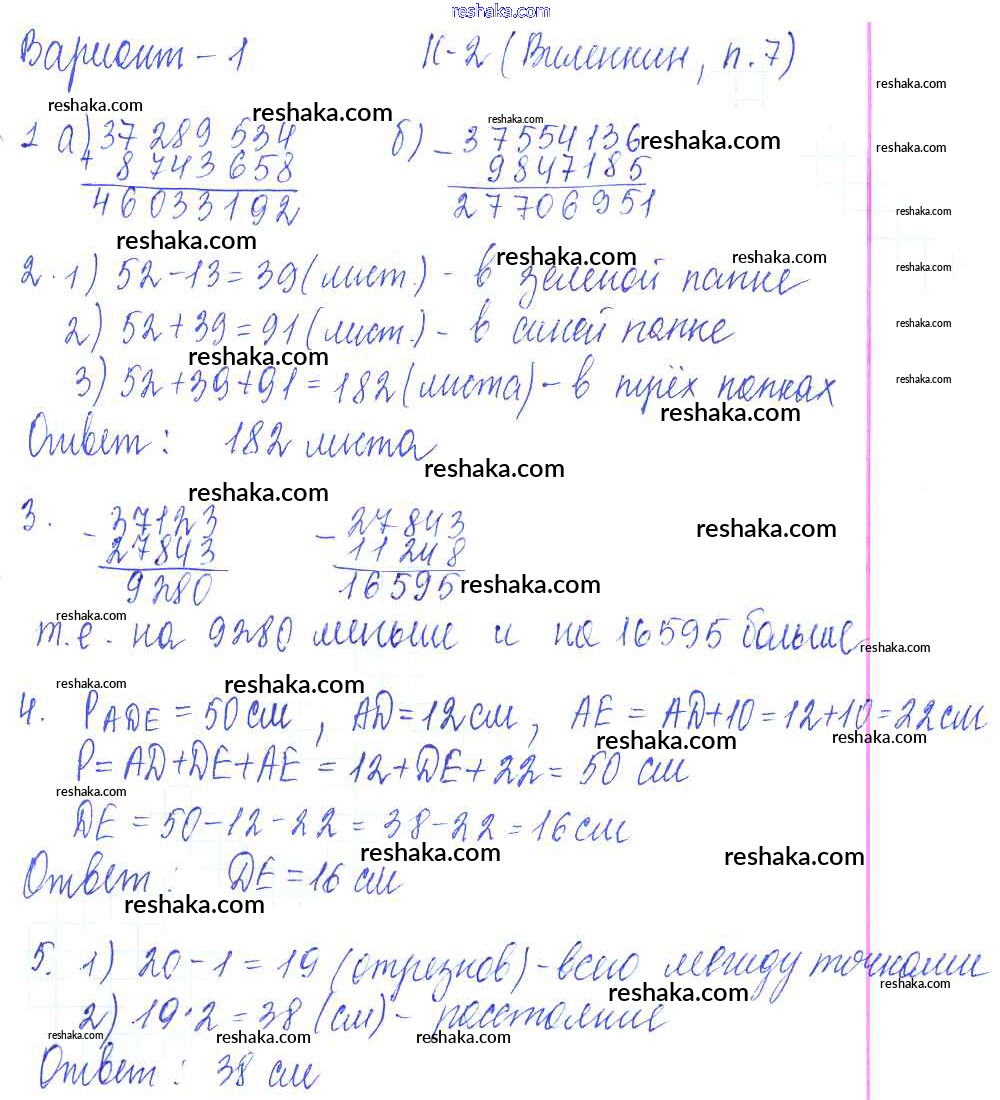 reshaka.com
Вариант - 1 К-2 (Виленкин, п.7)
reshaka.com reshaka.com reshaka.com reshaka.com
1 а) 37 289 534 б) - 37554136 reshaka.com reshaka.com
+ 8 743 658 9847185
46033192 27706951
reshaka.com reshaka.com
reshaka.com reshaka.com reshaka.com
2. 1) 52-13=39(лист.) - в зеленой папке
2) 52+39=91(лист.) - в синей папке reshaka.com
reshaka.com
3) 52+39+91=182(листа) - в трёх папках reshaka.com
reshaka.com
Ответ: 182 листа
reshaka.com
reshaka.com
3. - 37123 - 27843 reshaka.com
27843 11248
9280 16595 reshaka.com
reshaka.com
т.е. на 9280 меньше и на 16595 больше reshaka.com
reshaka.com reshaka.com
4. PADE = 50 см, AD=12см, AE = AD+10=12+10=22см
reshaka.com reshaka.com
P=AD+DE+AE = 12+DE+22= 50 см
reshaka.com
DE = 50-12-22=38-22=16см
reshaka.com reshaka.com
Ответ: DE=16 см
reshaka.com
5. 1) 20-1=19 (отрезков) - всего между точками
reshaka.com reshaka.com
2) 19·2=38 (см) - расстояние
reshaka.com reshaka.com reshaka.com
Ответ: 38 см